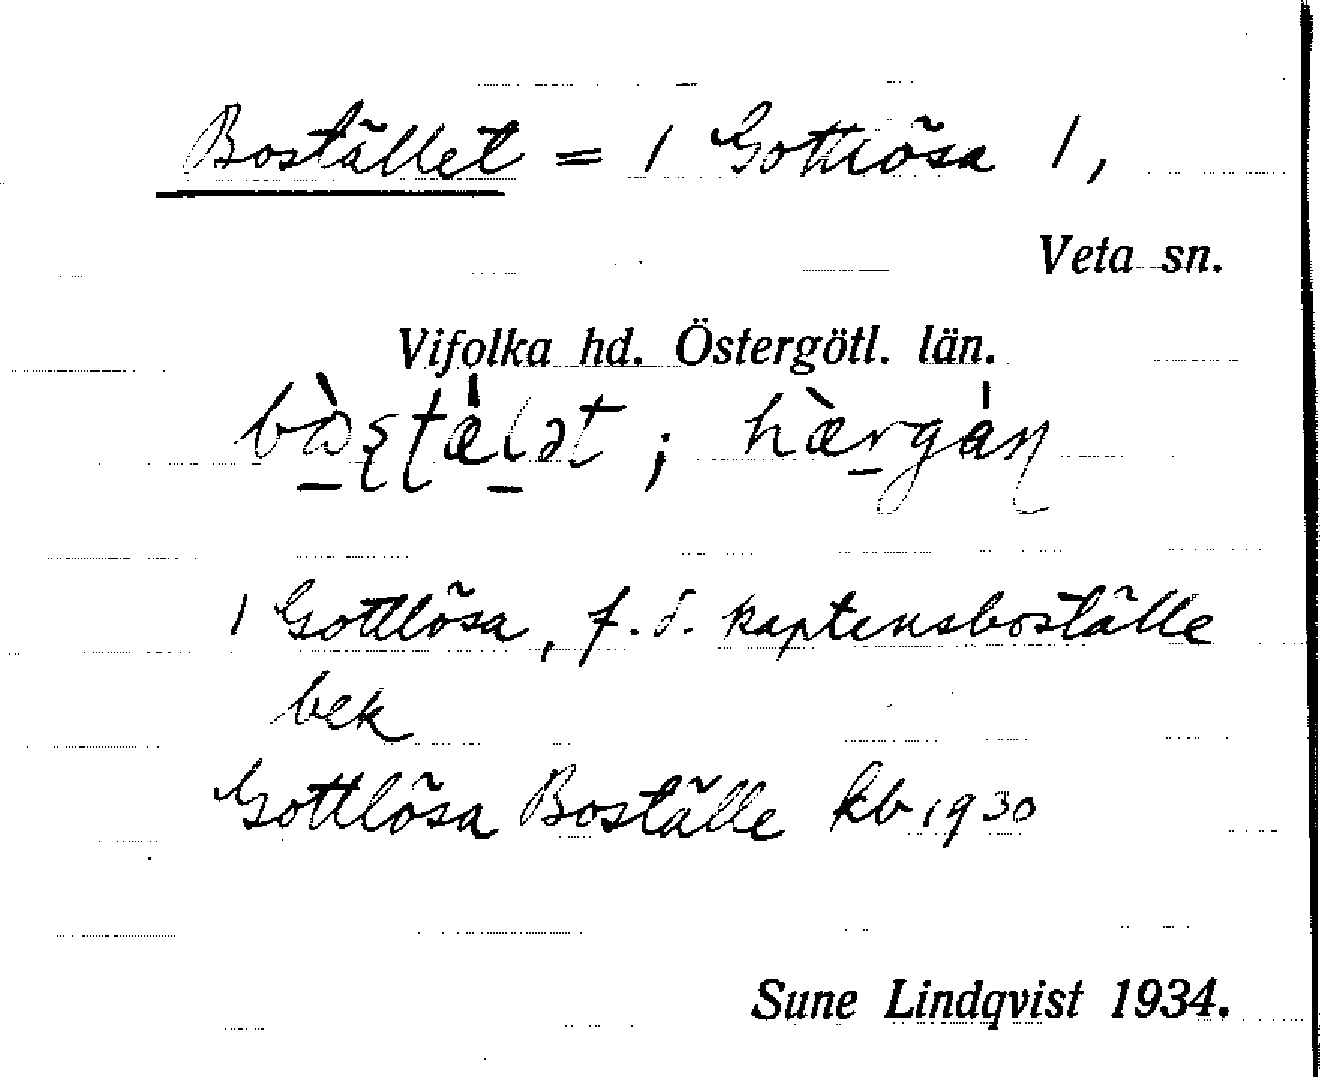 Bostället = 1 Gottlösa 1,
Veta sn.
Vifolka hd. Östergötl. län.
1 Gottlösa, f.d. kaptensboställe
bek
Gottlösa Boställe kb 1930
Sune Lindqvist 1934.